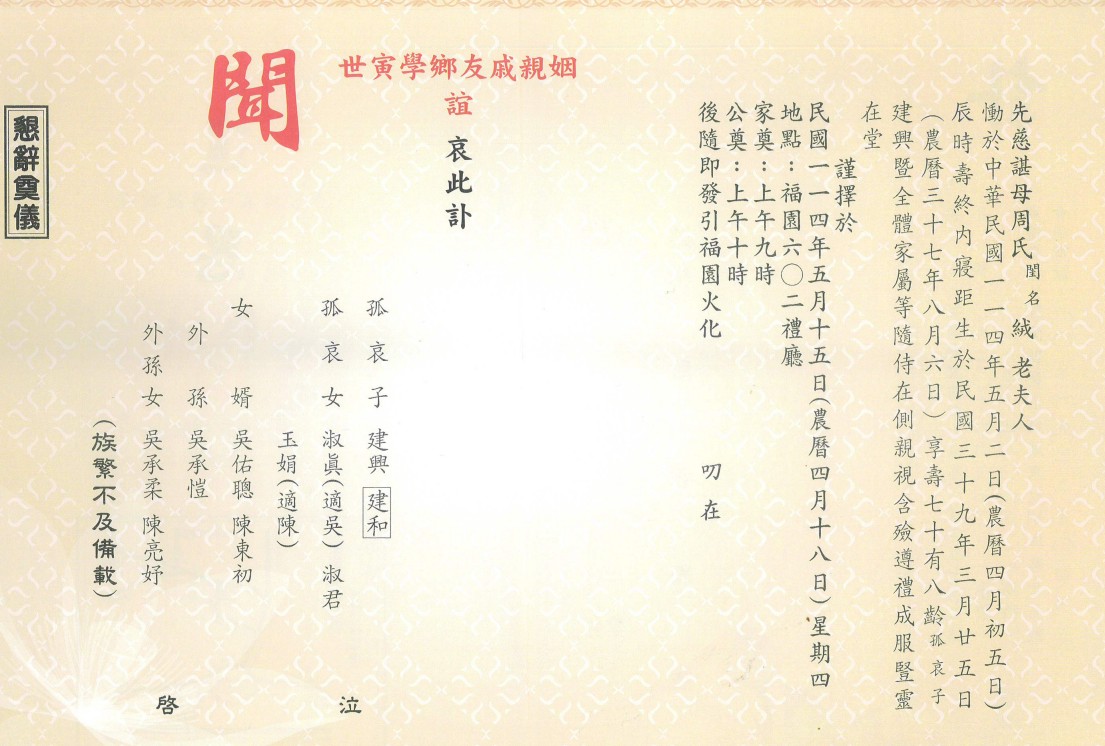 先慈諶母周氏閨名絨老夫人
慟於中華民國一一四年五月二日(農曆四月初五日)
辰時壽終內寢距生於民國三十九年三月廿五日
(農曆三十七年八月六日)享壽七十有八齡孤哀子
建興暨全體家屬等隨侍在側親視含殮遵禮成服豎靈
在堂
謹擇於
民國一一四年五月十五日(農曆四月十八日)星期四
地點：福園六〇二禮廳
家奠：上午九時
公奠：上午十時
後隨即發引福園火化
叨在
姻親戚友鄉學寅世
誼
哀此訃
聞
孤哀子 建興 建和
孤哀女 淑眞(適吳) 淑君
玉娟(適陳)
女婿 吳佑聰 陳東初
外孫 吳承愷
外孫女 吳承柔 陳亮妤
(族繁不及備載)
泣啓
懇辭奠儀